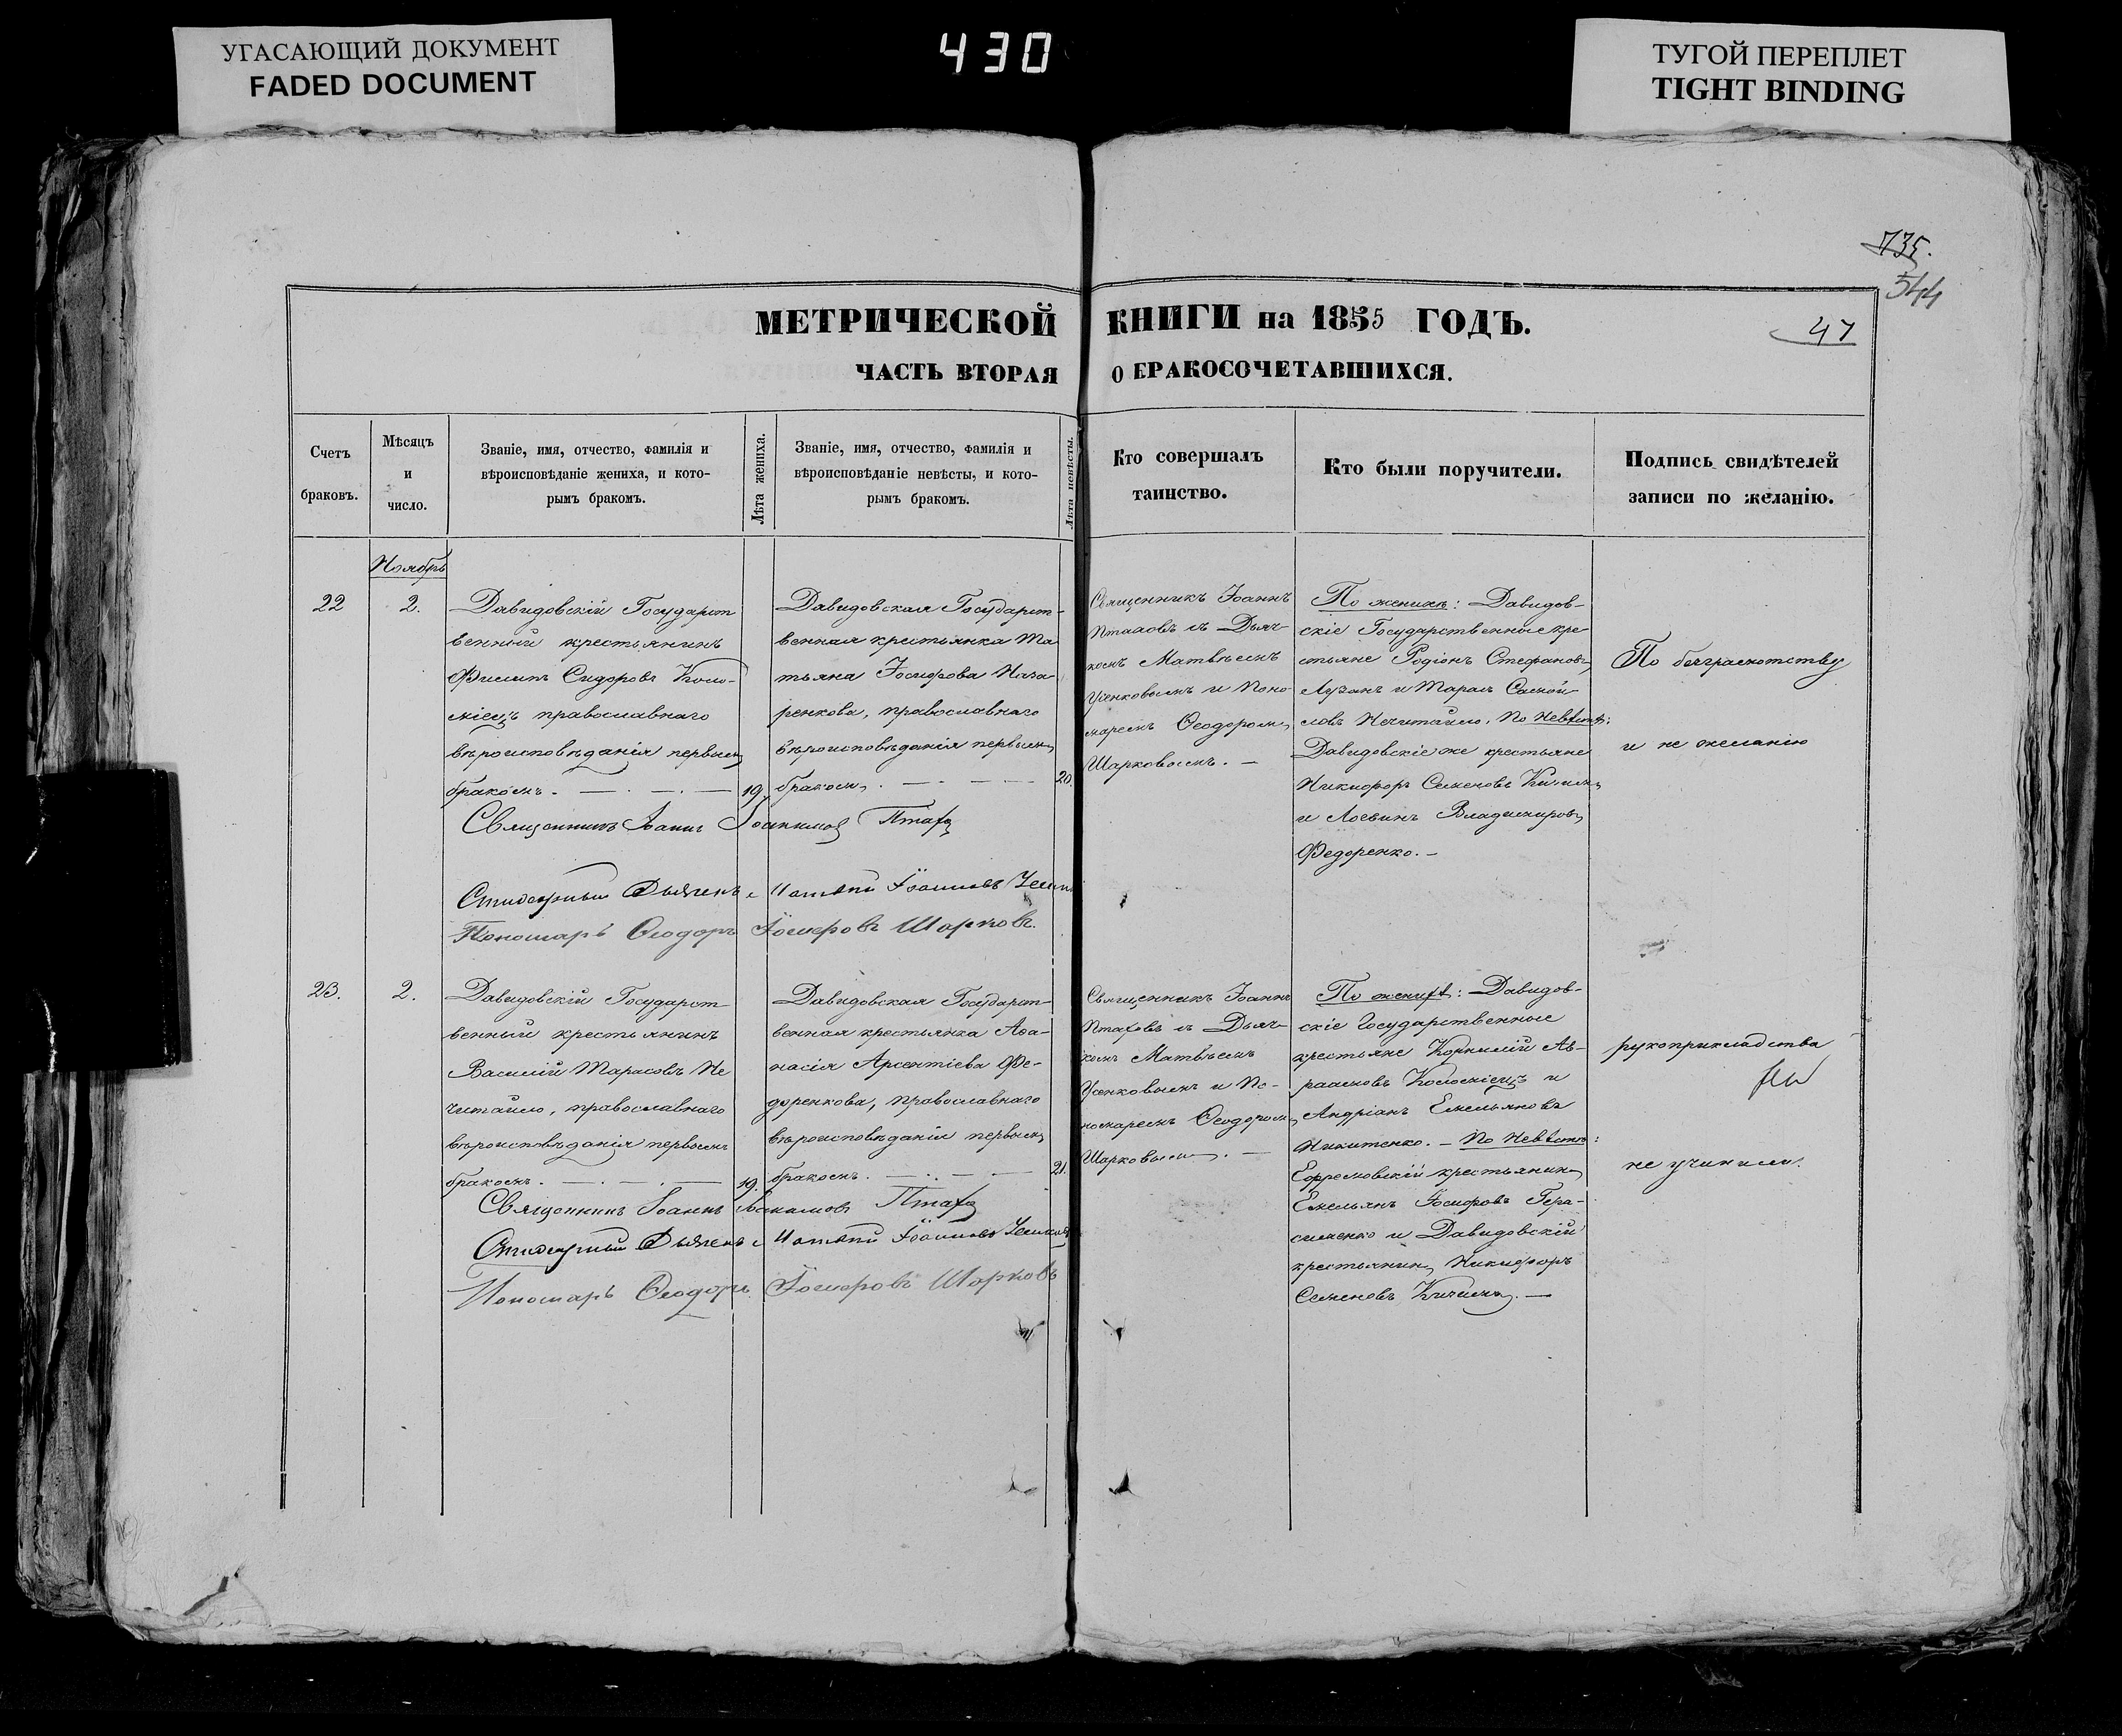 УГАСАЮЩИЙ ДОКУМЕНТ
FADED DOCUMENT
430
ТУГОЙ ПЕРЕПЛЕТ
TIGHT BINDING
735.
544
47
МЕТРИЧЕСКОЙ КНИГИ на 1855 ГОДЪ.
ЧАСТЬ ВТОРАЯ О БРАКОСОЧЕТАВШИХСЯ.
Счетъ
браковъ.
Мѣсяцъ
и
число.
Званіе, имя, отчество, фамилія и
вѣроисповѣданіе жениха, и кото-
рымъ бракомъ.
Лѣта жениха.
Званіе, имя, отчество, фамилія и
вѣроисповѣданіе невѣсты, и кото-
рымъ бракомъ.
Лѣта невѣсты.
Кто совершалъ
таинство.
Кто были поручители.
Подпись свидѣтелей
записи по желанію.
Ноябрь
22
2.
Давидовскій Государст
венный крестьянинъ
Филипъ Сидоровъ Коло-
міецъ православнаго
вѣроисповѣданія первымъ
бракомъ.
19.
Давидовская Государст-
венная крестьянка Та
тьяна Іосифова Наза
ренкова, православнаго
вѣроисповѣданія первымъ
бракомъ.
20.
Священникъ Іоаннъ
Птаховъ съ Дьяч-
комъ Матвѣемъ
Усенковымъ и Поно
маремъ Ѳеодоромъ
Шарковымъ.
По женихѣ: Давидов-
скіе Государственные кре
стьяне Родіонъ Стефановъ
Лузанъ и Тарасъ Самой-
ловъ Нечитайло. По невѣстѣ:
Давидовскіе же крестьяне
Никифоръ Семеновъ
и Логвинъ Владимировъ
Федоренко.
По безграмотству
и не желанію
Священникъ Іоаннъ Іоакимовъ Птаховъ
Дьячекъ Матвѣй Іоанновъ
Пономарь Ѳеодоръ Іосифовъ Шарковъ.
23.
2.
Давидовскій Государст
венный крестьянинъ
Василій Тарасовъ Не
читайло, православнаго
вѣроисповѣданія первымъ
бракомъ.
19.
Давидовская Государст-
венная крестьянка Аѳа-
насія Арсентіева Фе-
доренкова, православнаго
вѣроисповѣданія первымъ
бракомъ.
21.
Священникъ Іоаннъ
Птаховъ съ Дьяч-
комъ Матвѣемъ
Усенковымъ и По-
номаремъ Ѳеодоромъ
Шарковымъ.
По женихѣ: Давидов-
скіе Государственные
крестьяне Корнилій Ав-
раамовъ Коломіецъ и
Андріанъ Емельяновъ
Никитенко. – По невѣстѣ:
Ефремовскій крестьянинъ
Емельянъ Іосифовъ Гера-
сименко и Давидовскій
крестьянинъ Никифоръ
Семеновъ
рукоприкладства
не учинили.
Священникъ Іоаннъ Іоакимовъ Птаховъ
Дьячекъ Матвѣй Іоанновъ
Пономарь Ѳеодоръ Іосифовъ Шарковъ